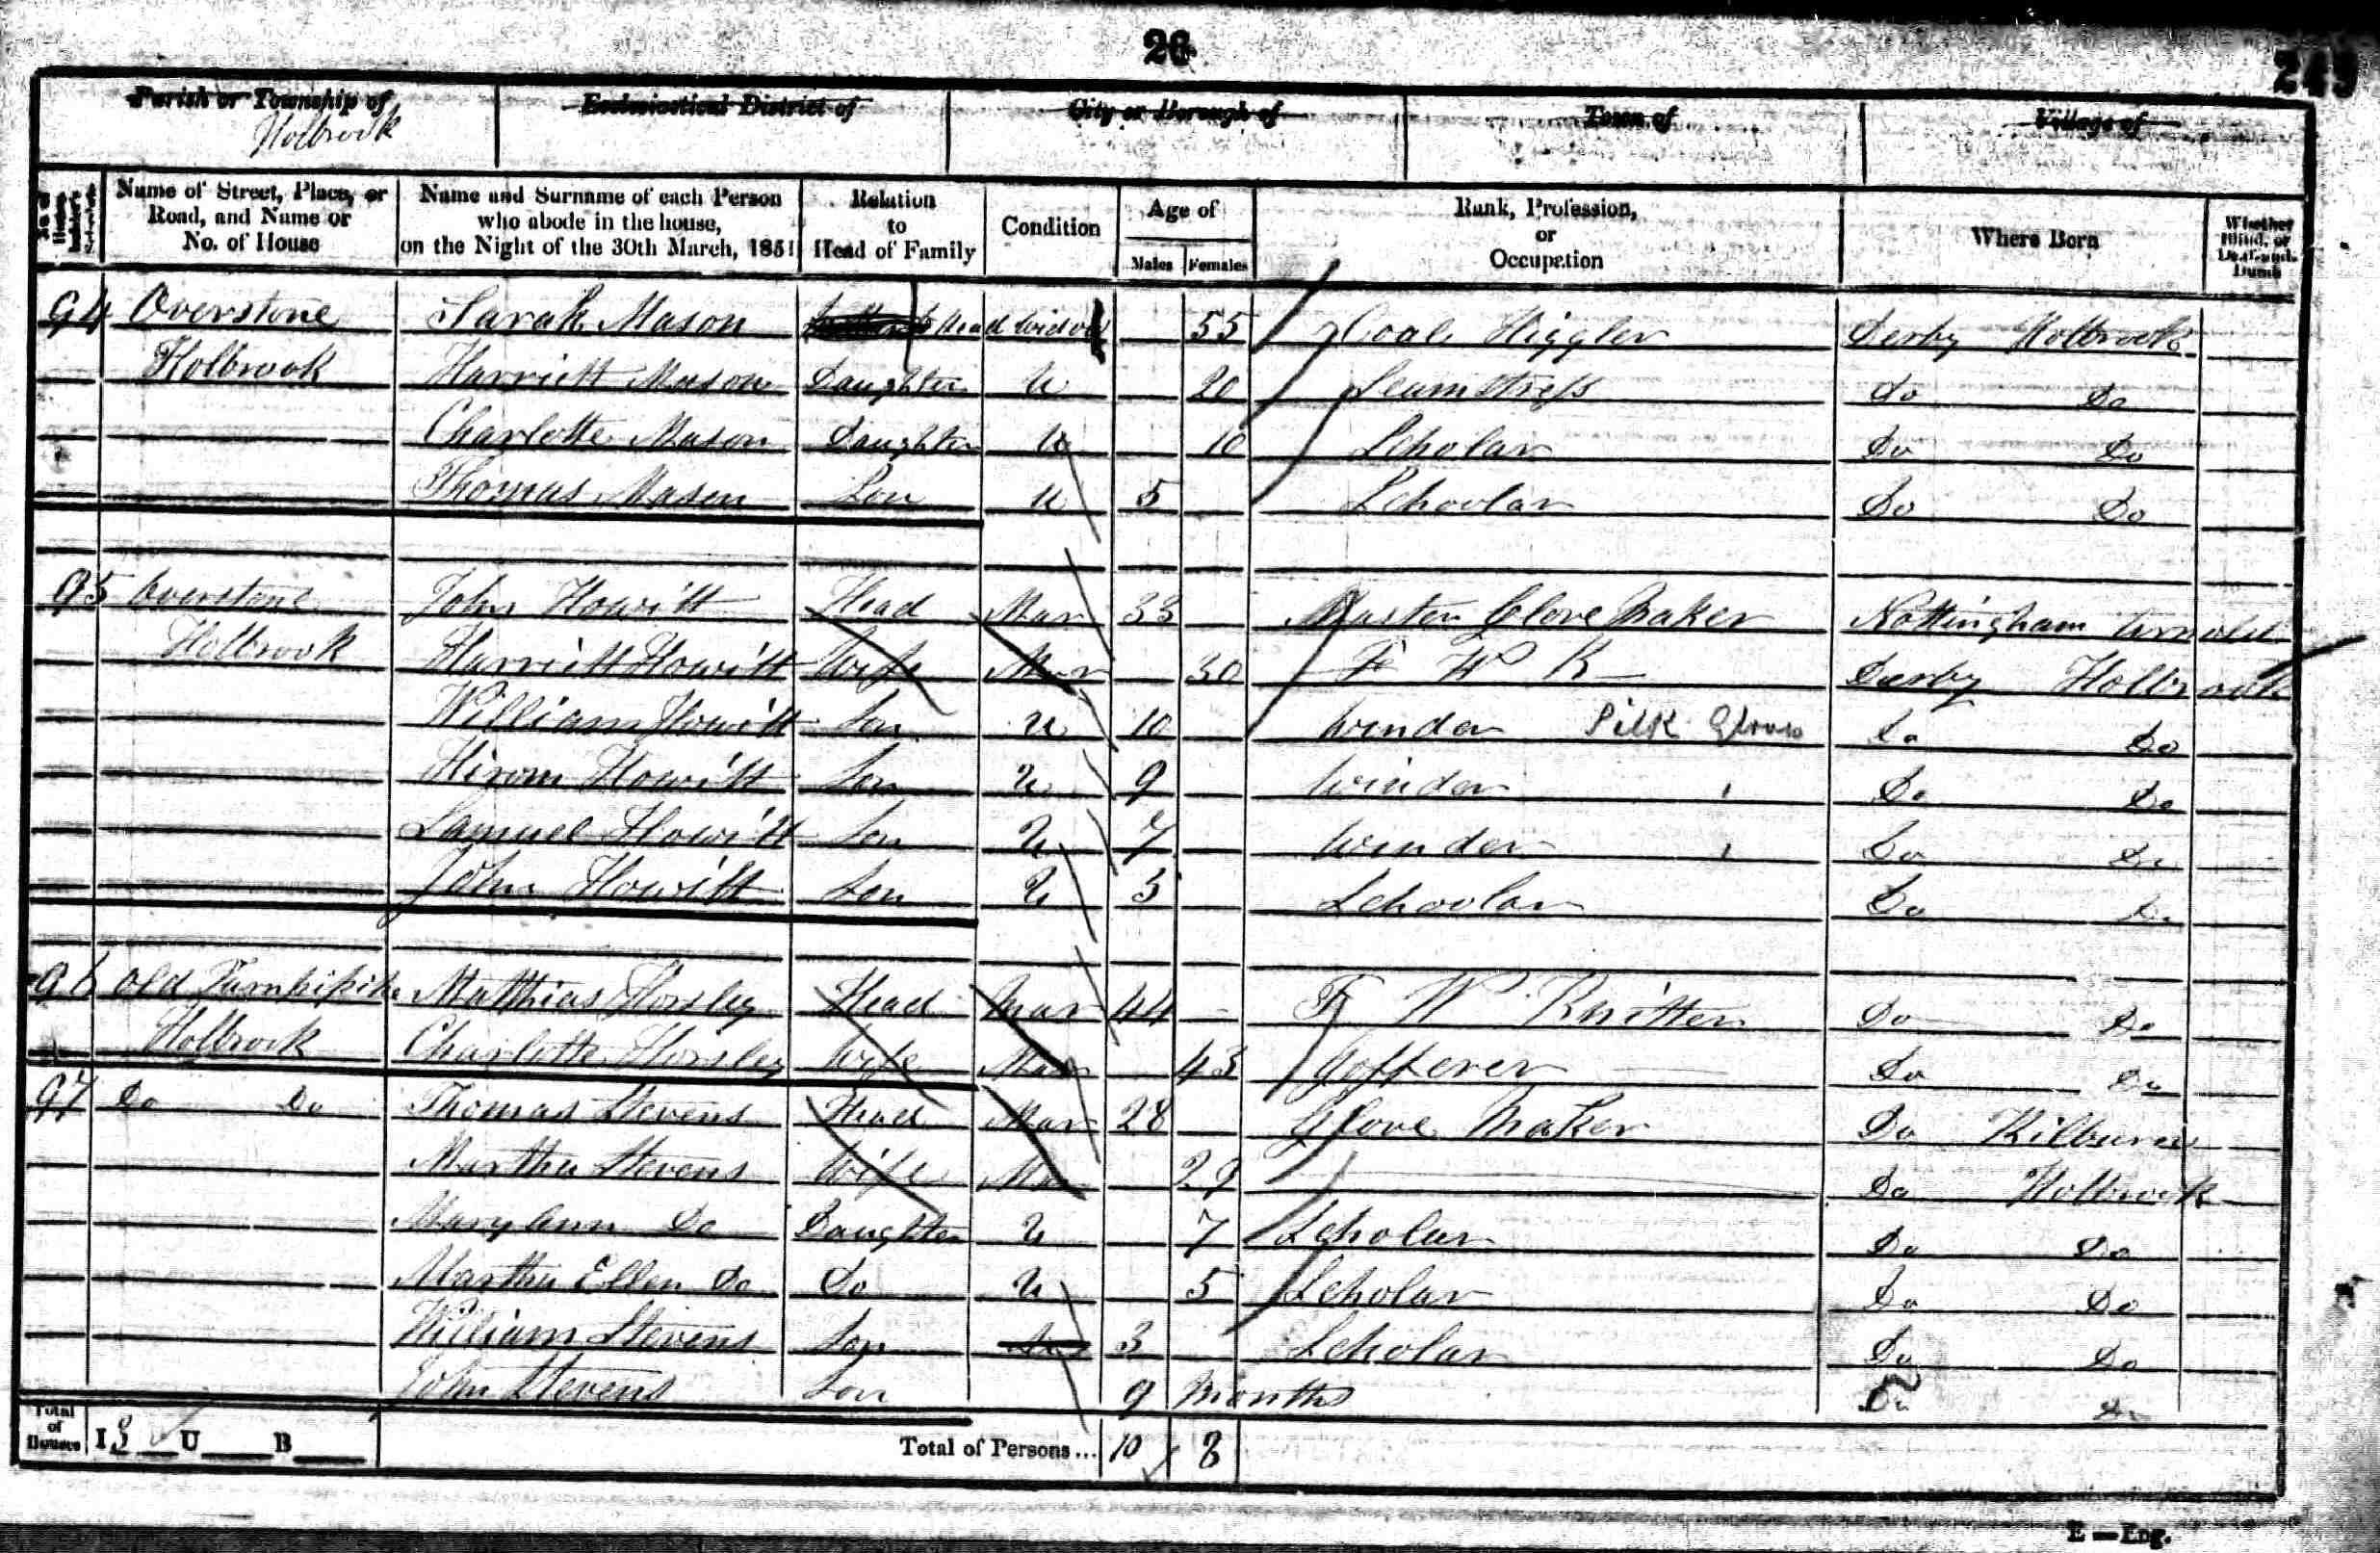 26
249
Parish or Township of Ecclesiastical District of City or Borough of Town of Village of
Holbrook
Name of Street, Place, or Road, and Name or No. of House
Name and Surname of each Person who abode in the house, on the Night of the 30th March, 1851
Relation to Head of Family
Condition
Age of
Males Females
Rank, Profession, or Occupation
Where Born
Whether Blind, or Deaf-and-Dumb
94 Overstone Sarah Mason Head Widow 55 Coal Higgler Derby Holbrook
Holbrook Harriett Mason Daughter U 20 Seamstress Do Do
Charlotte Mason Daughter U 10 Scholar Do Do
Thomas Mason Son U 5 Schoolar Do Do
95 Overstone John Howitt Head Mar 33 Master Glove Maker Nottingham Arnold
Holbrook Harriett Howitt Wife Mar 30 F W K Derby Holbrook
William Howitt Son U 10 Winder Silk Gloves Do Do
Hirom Howitt Son U 9 Winder Do Do
Samuel Howitt Son U 7 Winder Do Do
John Howitt Son U 3 Schoolar Do Do
96 Old Turnpike Matthias Horsley Head Mar 44 F W Knitter Do Do
Holbrook Charlotte Horsley Wife Mar 43 Gofferer Do Do
97 Do Do Thomas Stevens Head Mar 28 Glove Maker Do Kilburn
Martha Stevens Wife Mar 29 Do Holbrook
Mary Ann Do Daughter U 7 Scholar Do Do
Martha Ellen Do Do U 5 Scholar Do Do
William Stevens Son 3 Scholar Do Do
John Stevens Son 9 Months Do Do
Total of Houses I 3 U B Total of Persons... 10 8
E—Eng.